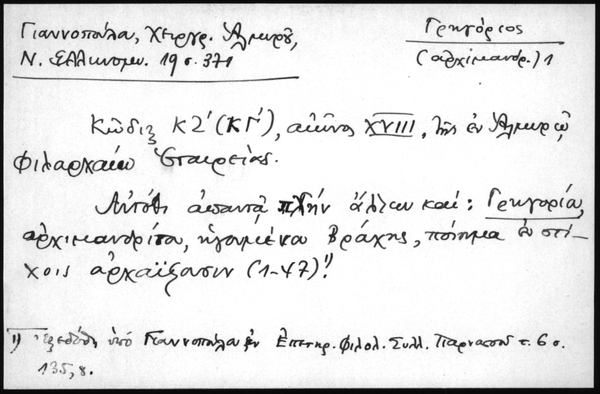 Γιαννοπούλου, Χειργρ. Ἁλμυροῦ,
Ν. Ἑλληνομν. 19 σ. 371
Γρηγόριος
(ἀρχιμανδρ.) 1
Κῶδιξ ΚΖ' (ΚΓ'), αἰῶνος XVIII, τῆς ἐν Ἁλμυρῷ
Φιλαρχαίου Ἑταιρείας.
Αὐτόθι ἀπαντᾷ πλὴν ἄλλων καί: Γρηγορίου,
ἀρχιμανδρίτου, ἡγουμένου Βράχης, ποίημα ἐν στί-
χοις ἀρχαΐζουσιν (1-47)!¹⁾
1) Ἐξεδόθη ὑπό Γιαννοπούλου ἐν Ἐπετηρ. Φιλολ. Συλλ. Παρνασσοῦ τ. 6 σ.
135, 8.